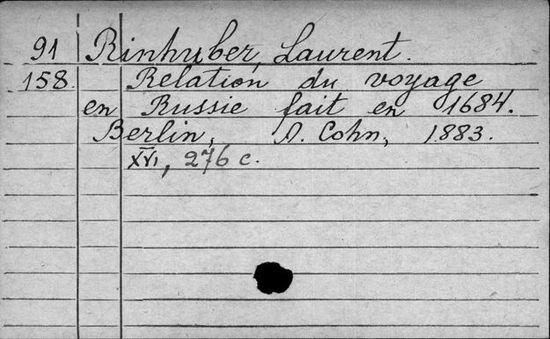 91 Rinhuber, Laurent.
158. Relation du voyage
en Russie fait en 1684.
Berlin, A. Cohn, 1883.
XVI, 276 c.